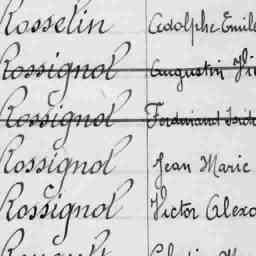 Rosselin Adolphe Emile
Rossignol Augustin
Rossignol Ferdinand
Rossignol Jean Marie
Rossignol Victor